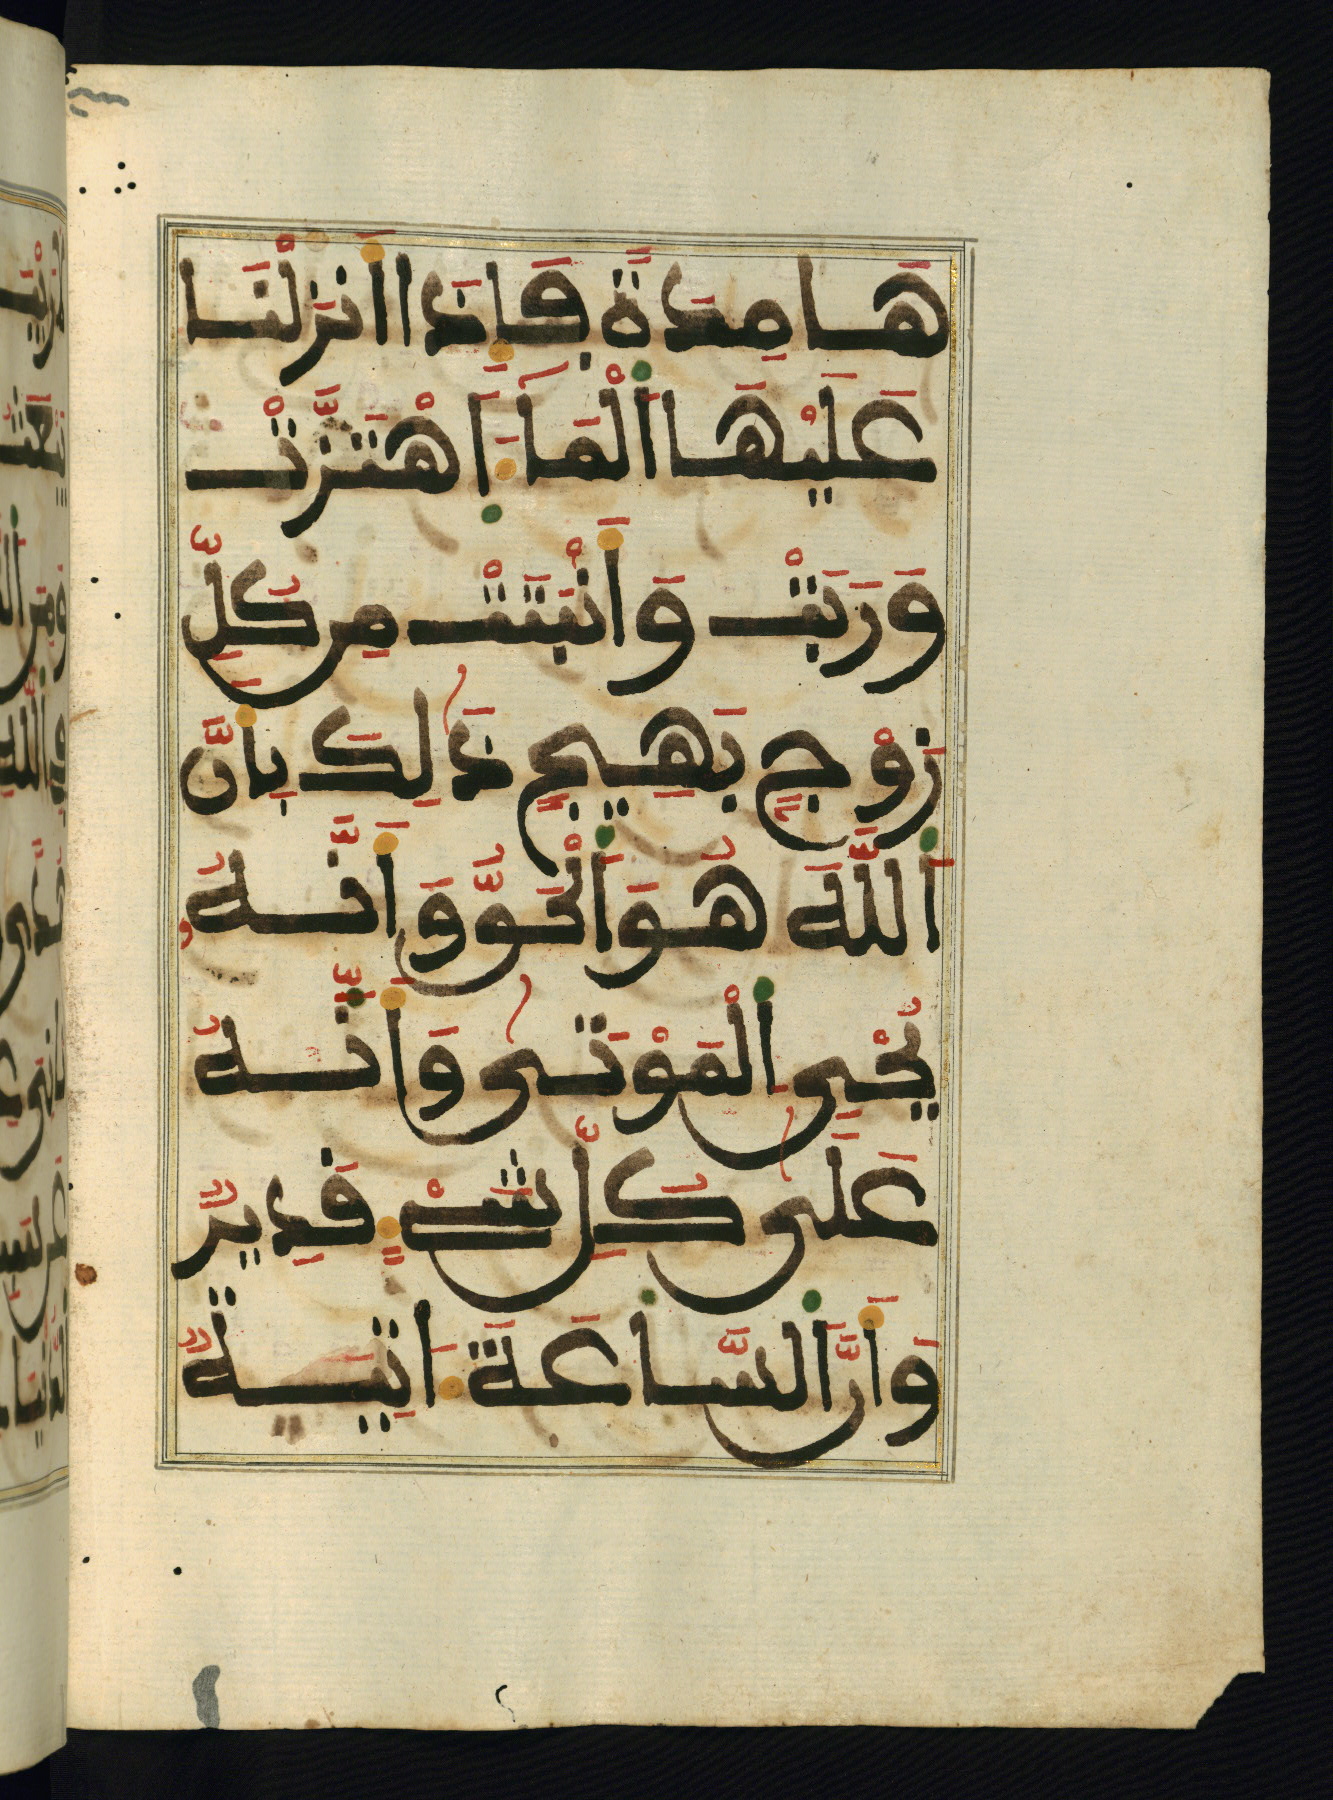 هَامِدَةً فَإِذَا أَنزَلْنَا
عَلَيْهَا اَلْمَآءَ اَهْتَزَّتْ
وَرَبَتْ وَأَنْبَتَتْ مِن كُلِّ
زَوْجٍ بَهِيجٍ ذَلِكَ بِأَنَّ
اَللَّهَ هُوَ اَلْحَقُّ وَأَنَّهُ
يُحْيِ اِلْمَوْتَى وَأَنَّهُ
عَلَى كُلِّ شَيْءٍ قَدِيرٌ
وَأَنَّ اَلسَّاعَةَ ءَاتِيَةٌ